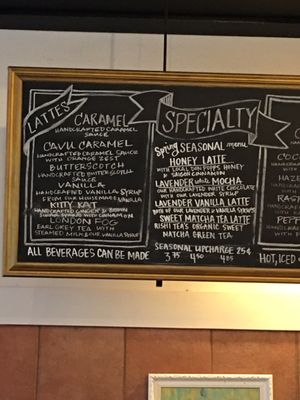 LATTES
CARAMEL
HANDCRAFTED CARAMEL
SAUCE
CAVU CARAMEL
HANDCRAFTED CARAMEL SAUCE
WITH ORANGE ZEST
BUTTERSCOTCH
HANDCRAFTED BUTTERSCOTCH
SAUCE
VANILLA
HANDCRAFTED VANILLA SYRUP
FROM OUR HOUSEMADE VANILLA
KITTY KAT
HANDCRAFTED
WITH CINNAMON
LONDON FOG
EARL GREY TEA WITH
STEAMED MILK & OUR VANILLA SYRUP
SPECIALTY
Spring SEASONAL menu
HONEY LATTE
WITH LOCAL DON POPPS HONEY
& SAIGON CINNAMON
LAVENDER white MOCHA
OUR HANDCRAFTED WHITE CHOCOLATE
WITH OUR LAVENDER SYRUP
LAVENDER VANILLA LATTE
BOTH OF OUR LAVENDER & VANILLA SYRUPS
SWEET MATCHA TEA LATTE
RISHI TEA'S ORGANIC SWEET
MATCHA GREEN TEA
SEASONAL UPCHARGE 25¢
3.75 4.50 4.85
COC
HAZE
RASP
PEPPE
ALL BEVERAGES CAN BE MADE
HOT, ICED